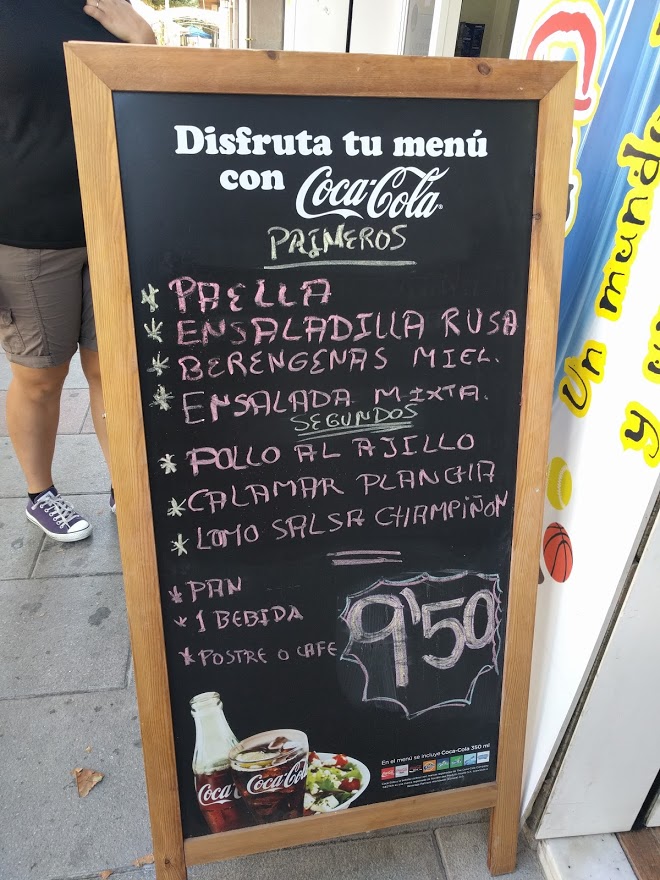 Disfruta tu menú
con Coca-Cola
PRIMEROS
* PAELLA
* ENSALADILLA RUSA
* BERENGENAS MIEL.
* ENSALADA MIXTA.
SEGUNDOS
* POLLO AL AJILLO
* CALAMAR PLANCHA
* LOMO SALSA CHAMPIÑON
* PAN
* 1 BEBIDA
* POSTRE O CAFE
9'50
Coca-Cola
En el menú se incluye Coca-Cola 350 ml
Un mundo
y